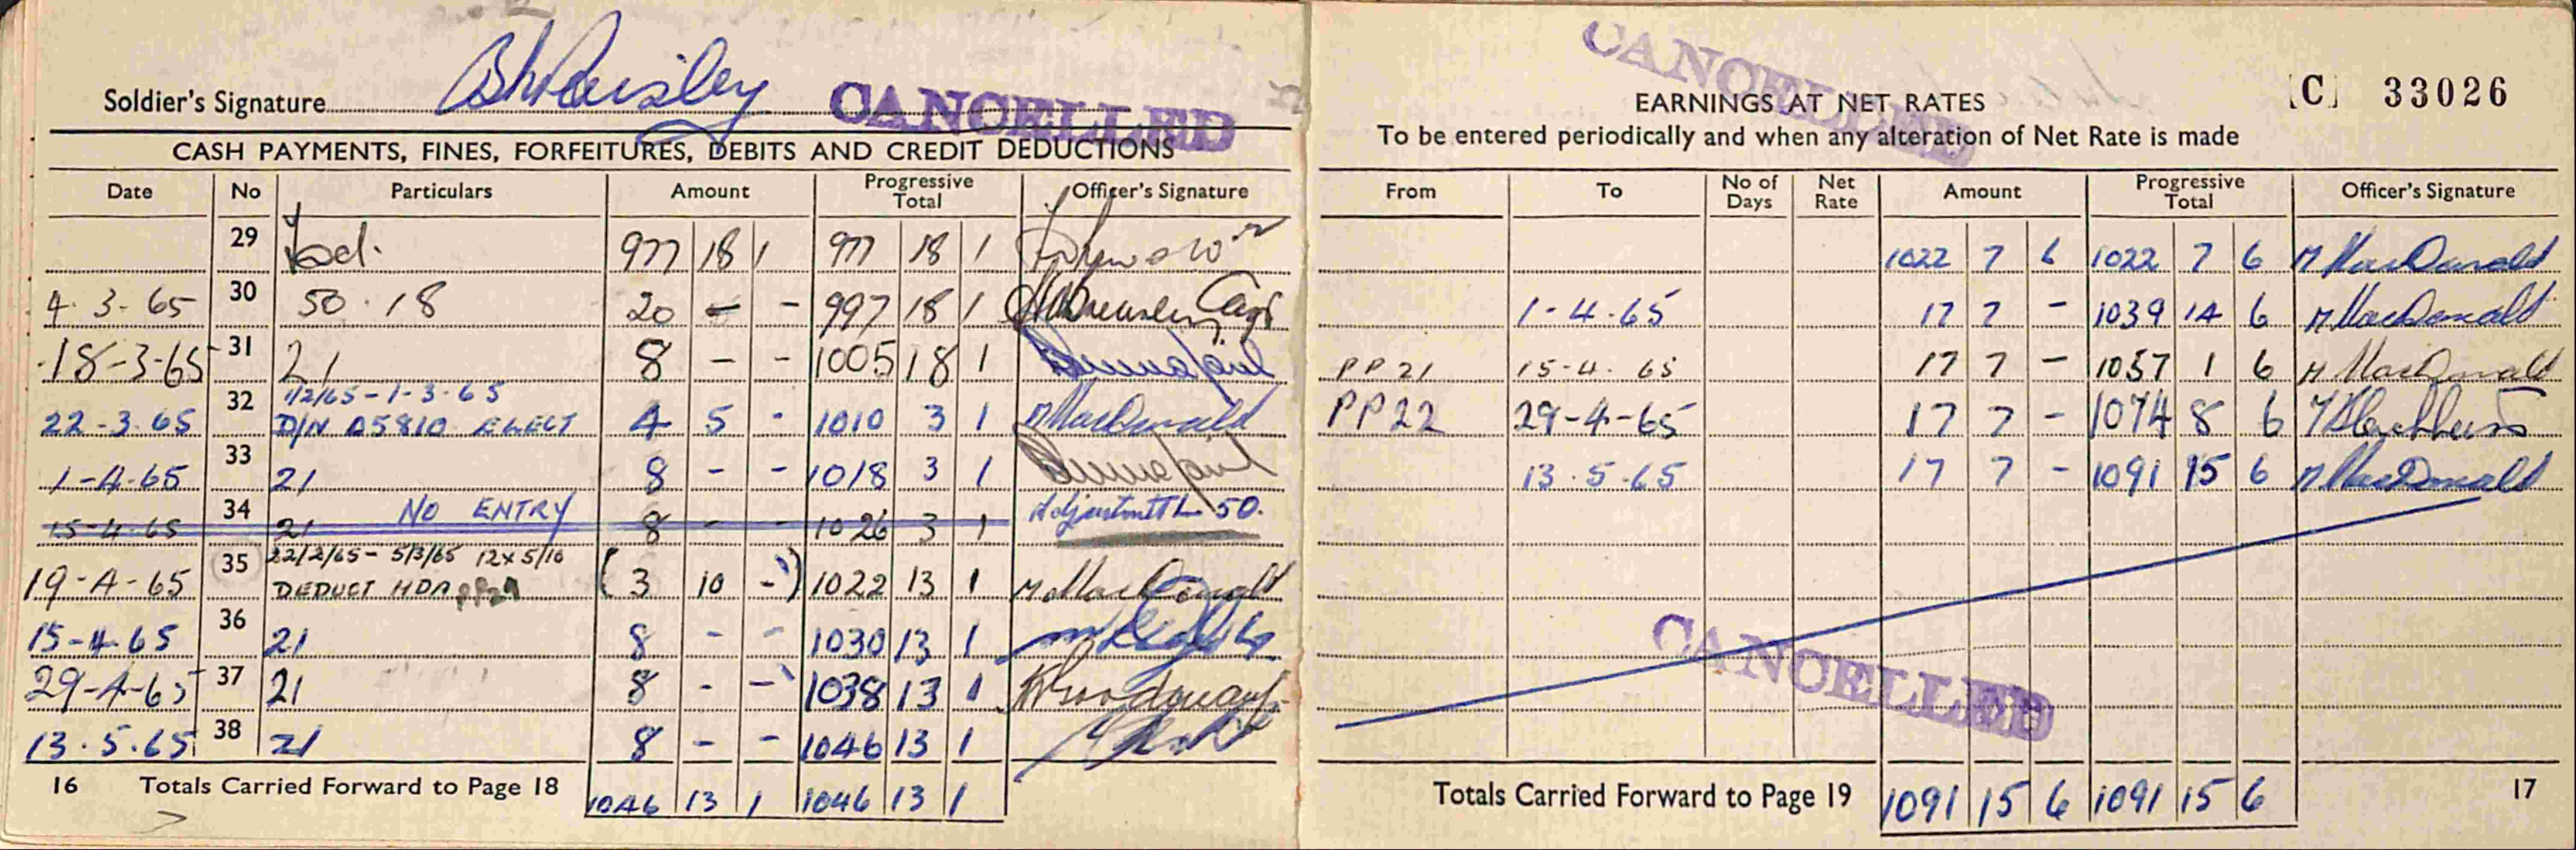 Soldier's Signature
CANCELLED
CASH PAYMENTS, FINES, FORFEITURES, DEBITS AND CREDIT DEDUCTIONS
Date No Particulars Amount Progressive Total Officer's Signature
29 977 18 1 977 18 1
4.3.65 30 50.18 20 - - 997 18 1
18-3-65 31 21 8 - - 1005 18 1
1/2/65-1-3-65
22-3-65 32 D/N A5810 ELECT 4 5 - 1010 3 1 M MacDonald
1-4-65 33 21 8 - - 1018 3 1
NO ENTRY
15-4-65 34 21 8 - - 1026 3 1 50.
22/2/65 - 5/3/65 12x5/10
19-4-65 35 DEDUCT HDA PP29 (3 10 -) 1022 13 1 M MacDonald
15-4-65 36 21 8 - - 1030 13 1
29-4-65 37 21 8 - - 1038 13 1
13.5.65 38 21 8 - - 1046 13 1
16 Totals Carried Forward to Page 18 1046 13 1 1046 13 1
CANCELLED
(C) 33026
EARNINGS AT NET RATES
To be entered periodically and when any alteration of Net Rate is made
From To No of Days Net Rate Amount Progressive Total Officer's Signature
1022 7 6 1022 7 6 M MacDonald
1-4-65 17 7 - 1039 14 6 M MacDonald
PP21 15-4-65 17 7 - 1057 1 6 M MacDonald
PP22 29-4-65 17 7 - 1074 8 6
13.5.65 17 7 - 1091 15 6 M MacDonald
CANCELLED
Totals Carried Forward to Page 19 1091 15 6 1091 15 6 17